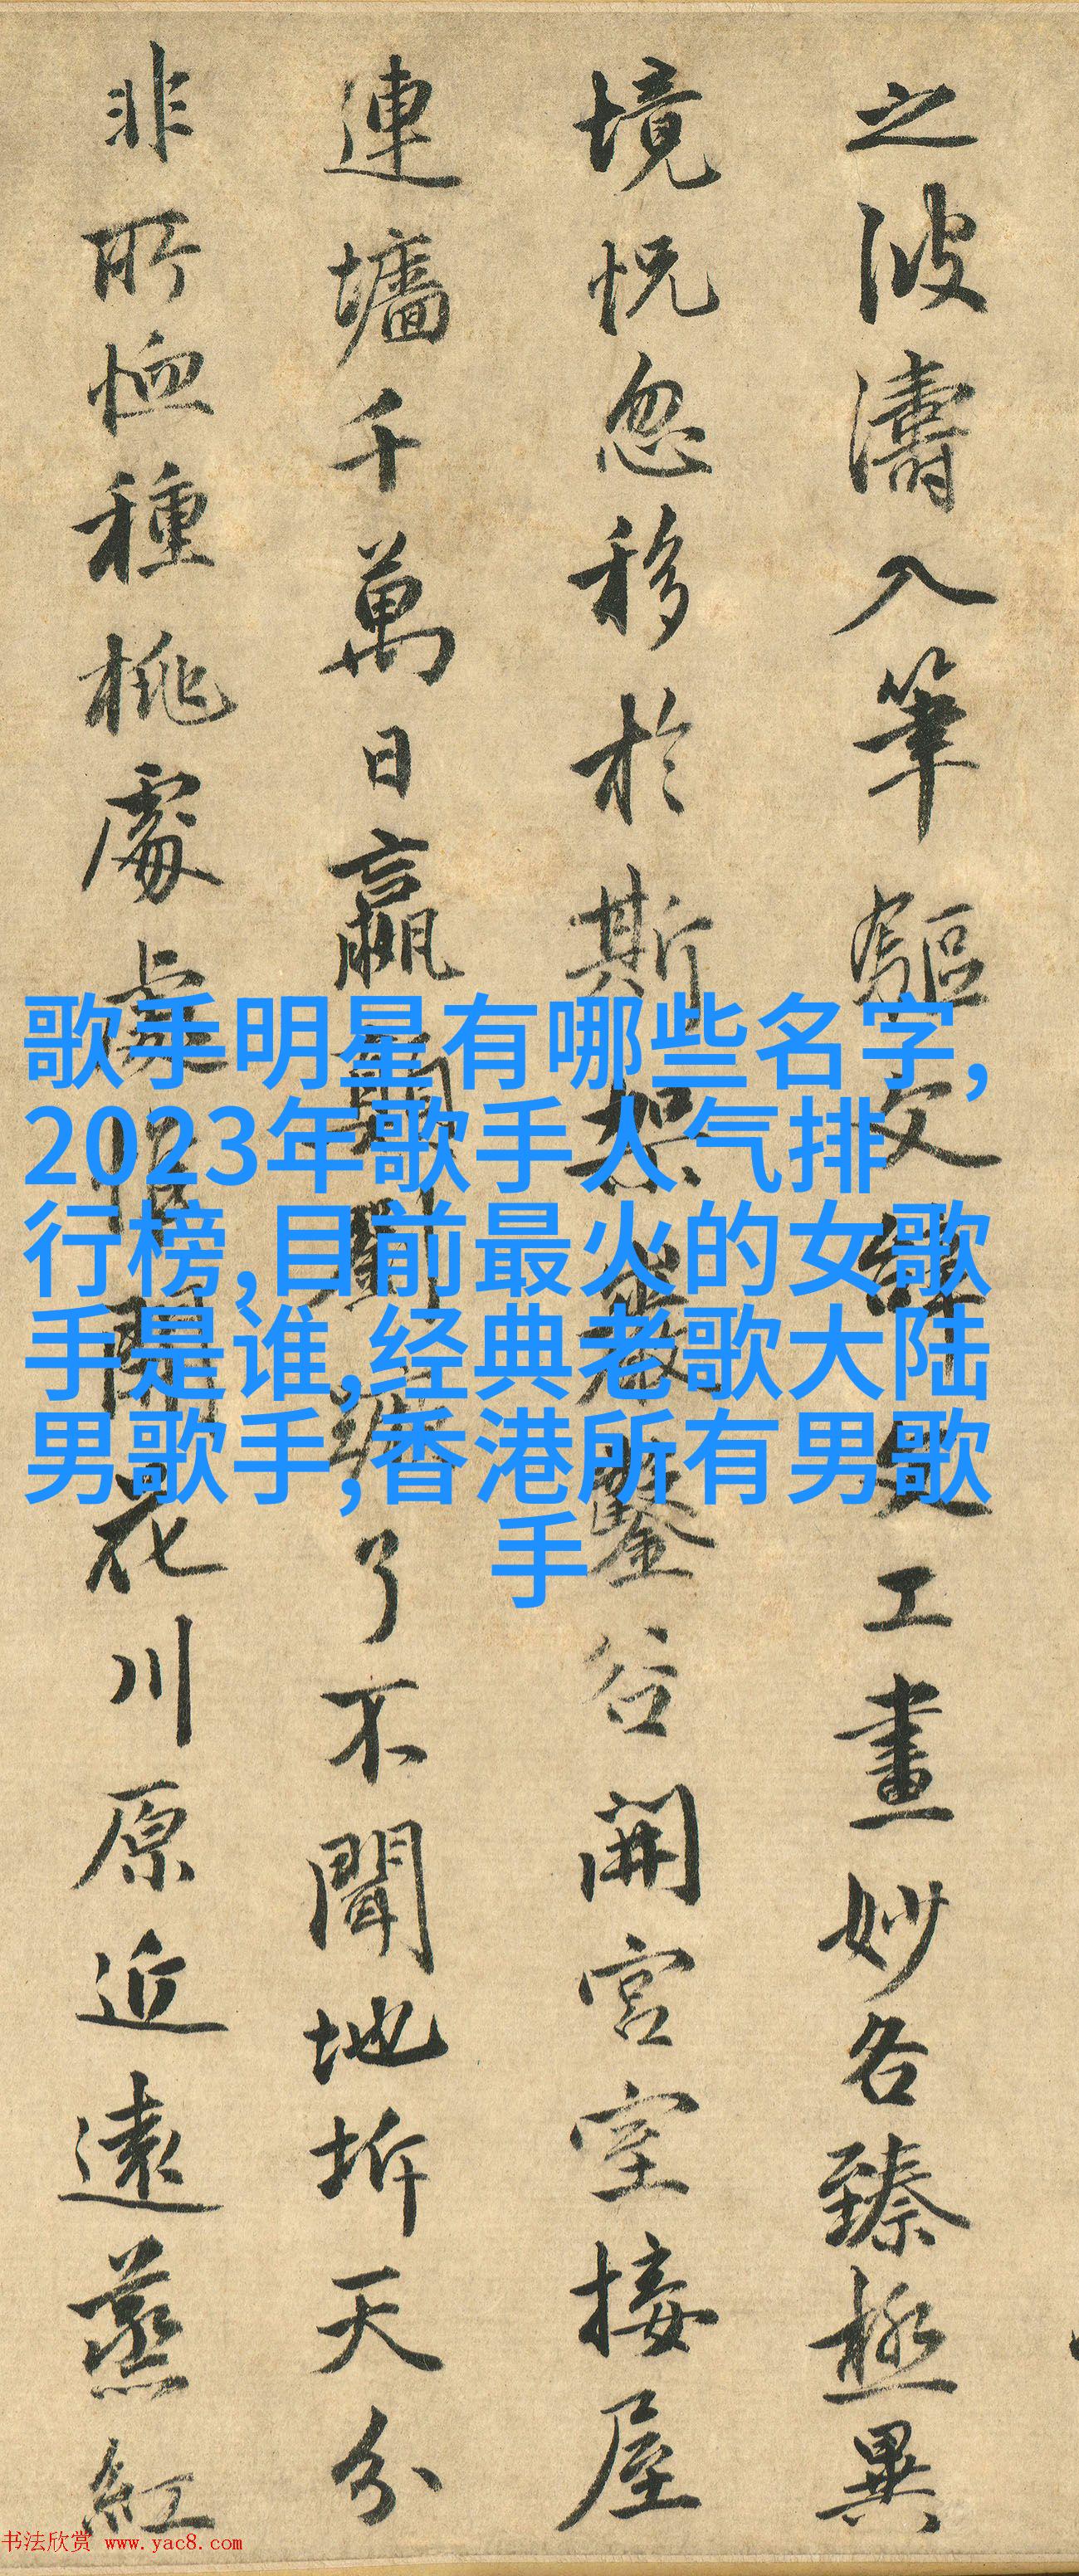 之波濤入筆驅文辭文工畫妙各臻極異
境恍忽移於斯架巖鑿谷開宮室接屋
連墻千萬日嬴顛劉蹶了不聞地坼天分
非所恤種桃處處惟開花川原近遠蒸紅
歌手明星有哪些名字,
2023年歌手人气排
行榜,目前最火的女歌
手是谁,经典老歌大陆
男歌手,香港所有男歌
手
书法欣赏 www.yac8.com